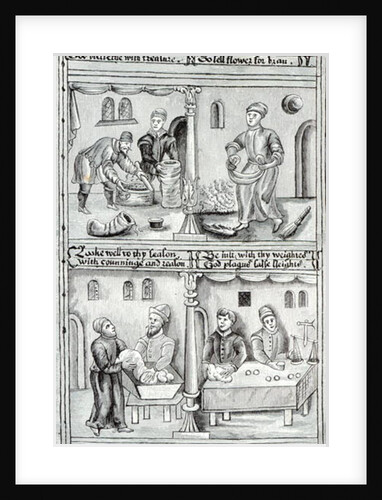 with treasure. To sell flower for bran.
well to thy season,
With counninge and reason.
Be iust, with thy weightes
God plagues false sleights.